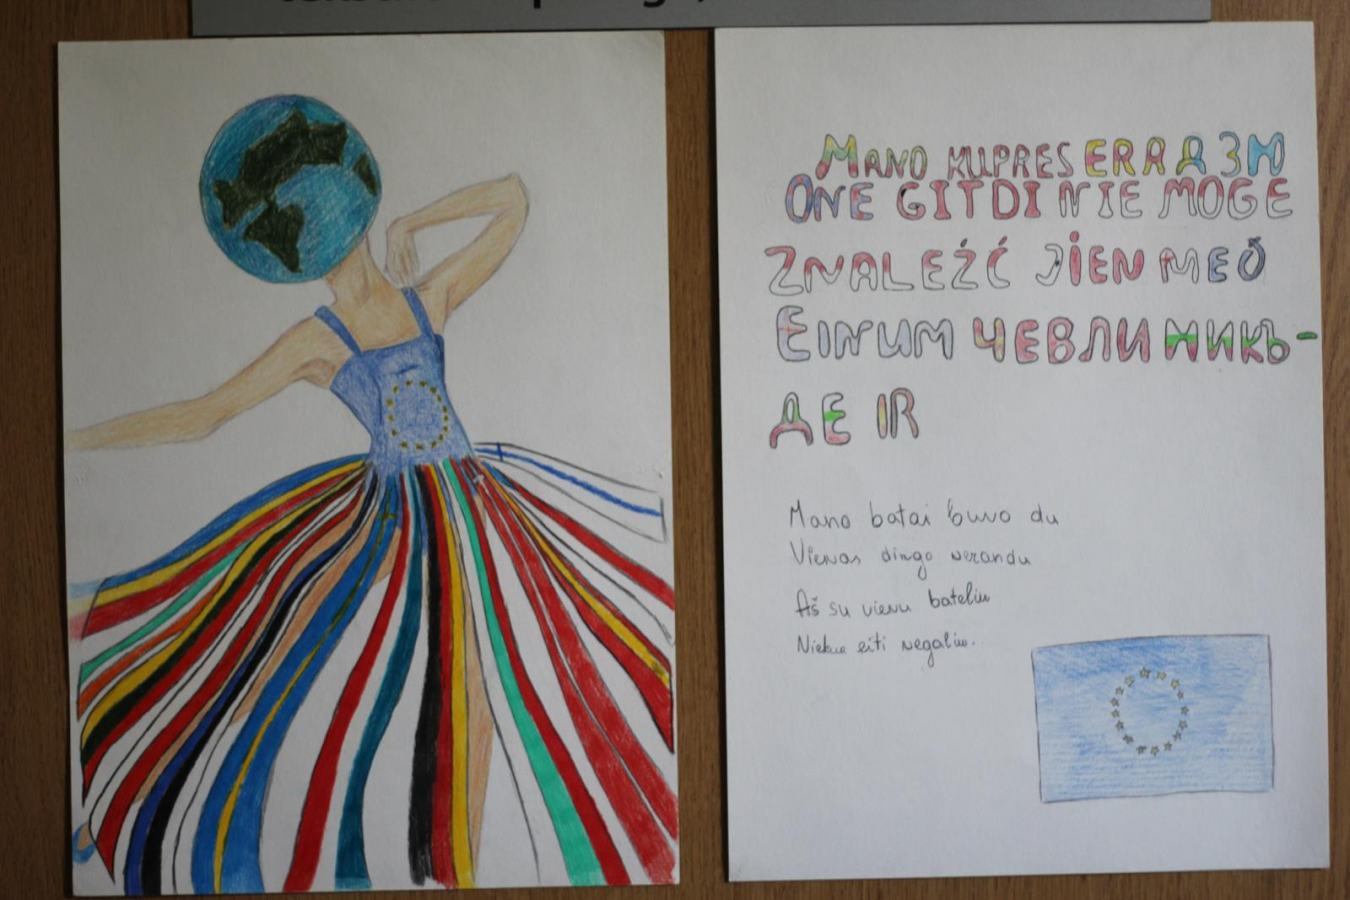 MANO KUPRES ERA ДЗН
ONE GITDI NIE MOGE
ZNALEŹĆ JIEN MEÐ
EINUM ЧЕВЛИ НИКЪ-
ДЕ IR
Mano batai buvo du
Vienas dingo nerandu
Aš su vienu bateliu
Niekur eiti negaliu.